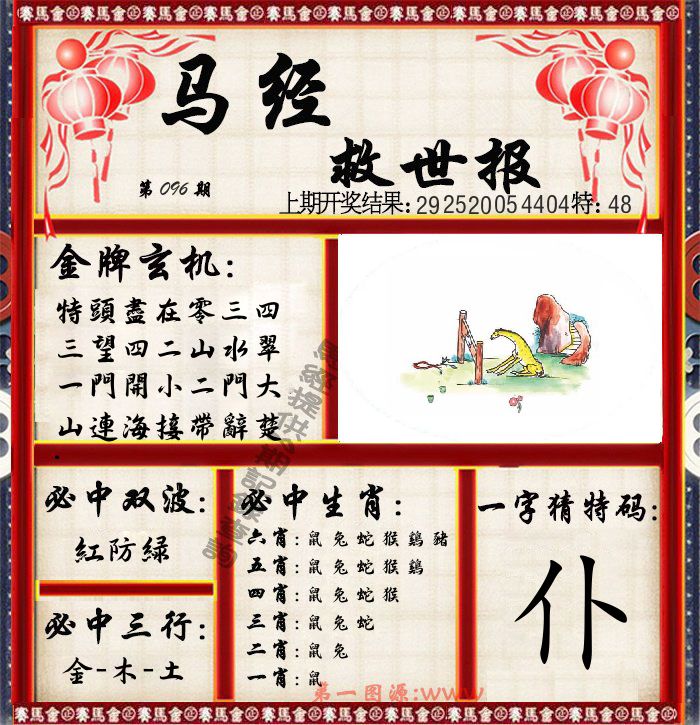 賽馬會 正 賽馬會 正 賽馬會 正 賽馬會 正 賽馬會 正 賽馬會 正 賽馬會
马经
救世报
第 096 期
上期开奖结果:292520054404特:48
金牌玄机:
特頭盡在零三四
三望四二山水翠
一門開小二門大
山連海接帶辭楚
必中双波:
紅防緑
必中三行:
金-木-土
必中生肖:
六肖:鼠兔蛇猴鷄豬
五肖:鼠兔蛇猴鷄
四肖:鼠兔蛇猴
三肖:鼠兔蛇
二肖:鼠兔
一肖:鼠
一字猜特码:
仆
第一图源:www